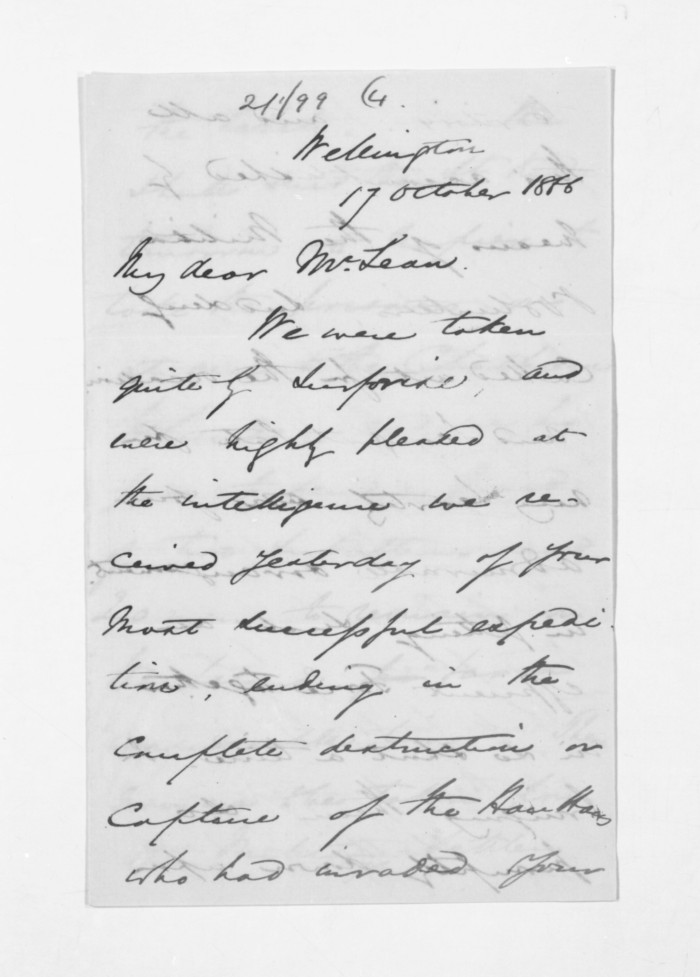 211/99 (4.
Wellington
17 October 1866
My dear McLean.
We were taken
quite by surprise, and
were highly pleased at
the intelligence we re-
ceived yesterday of your
most successful expedi-
tion, ending in the
complete destruction or
capture of the Hau Haus
who had invaded your